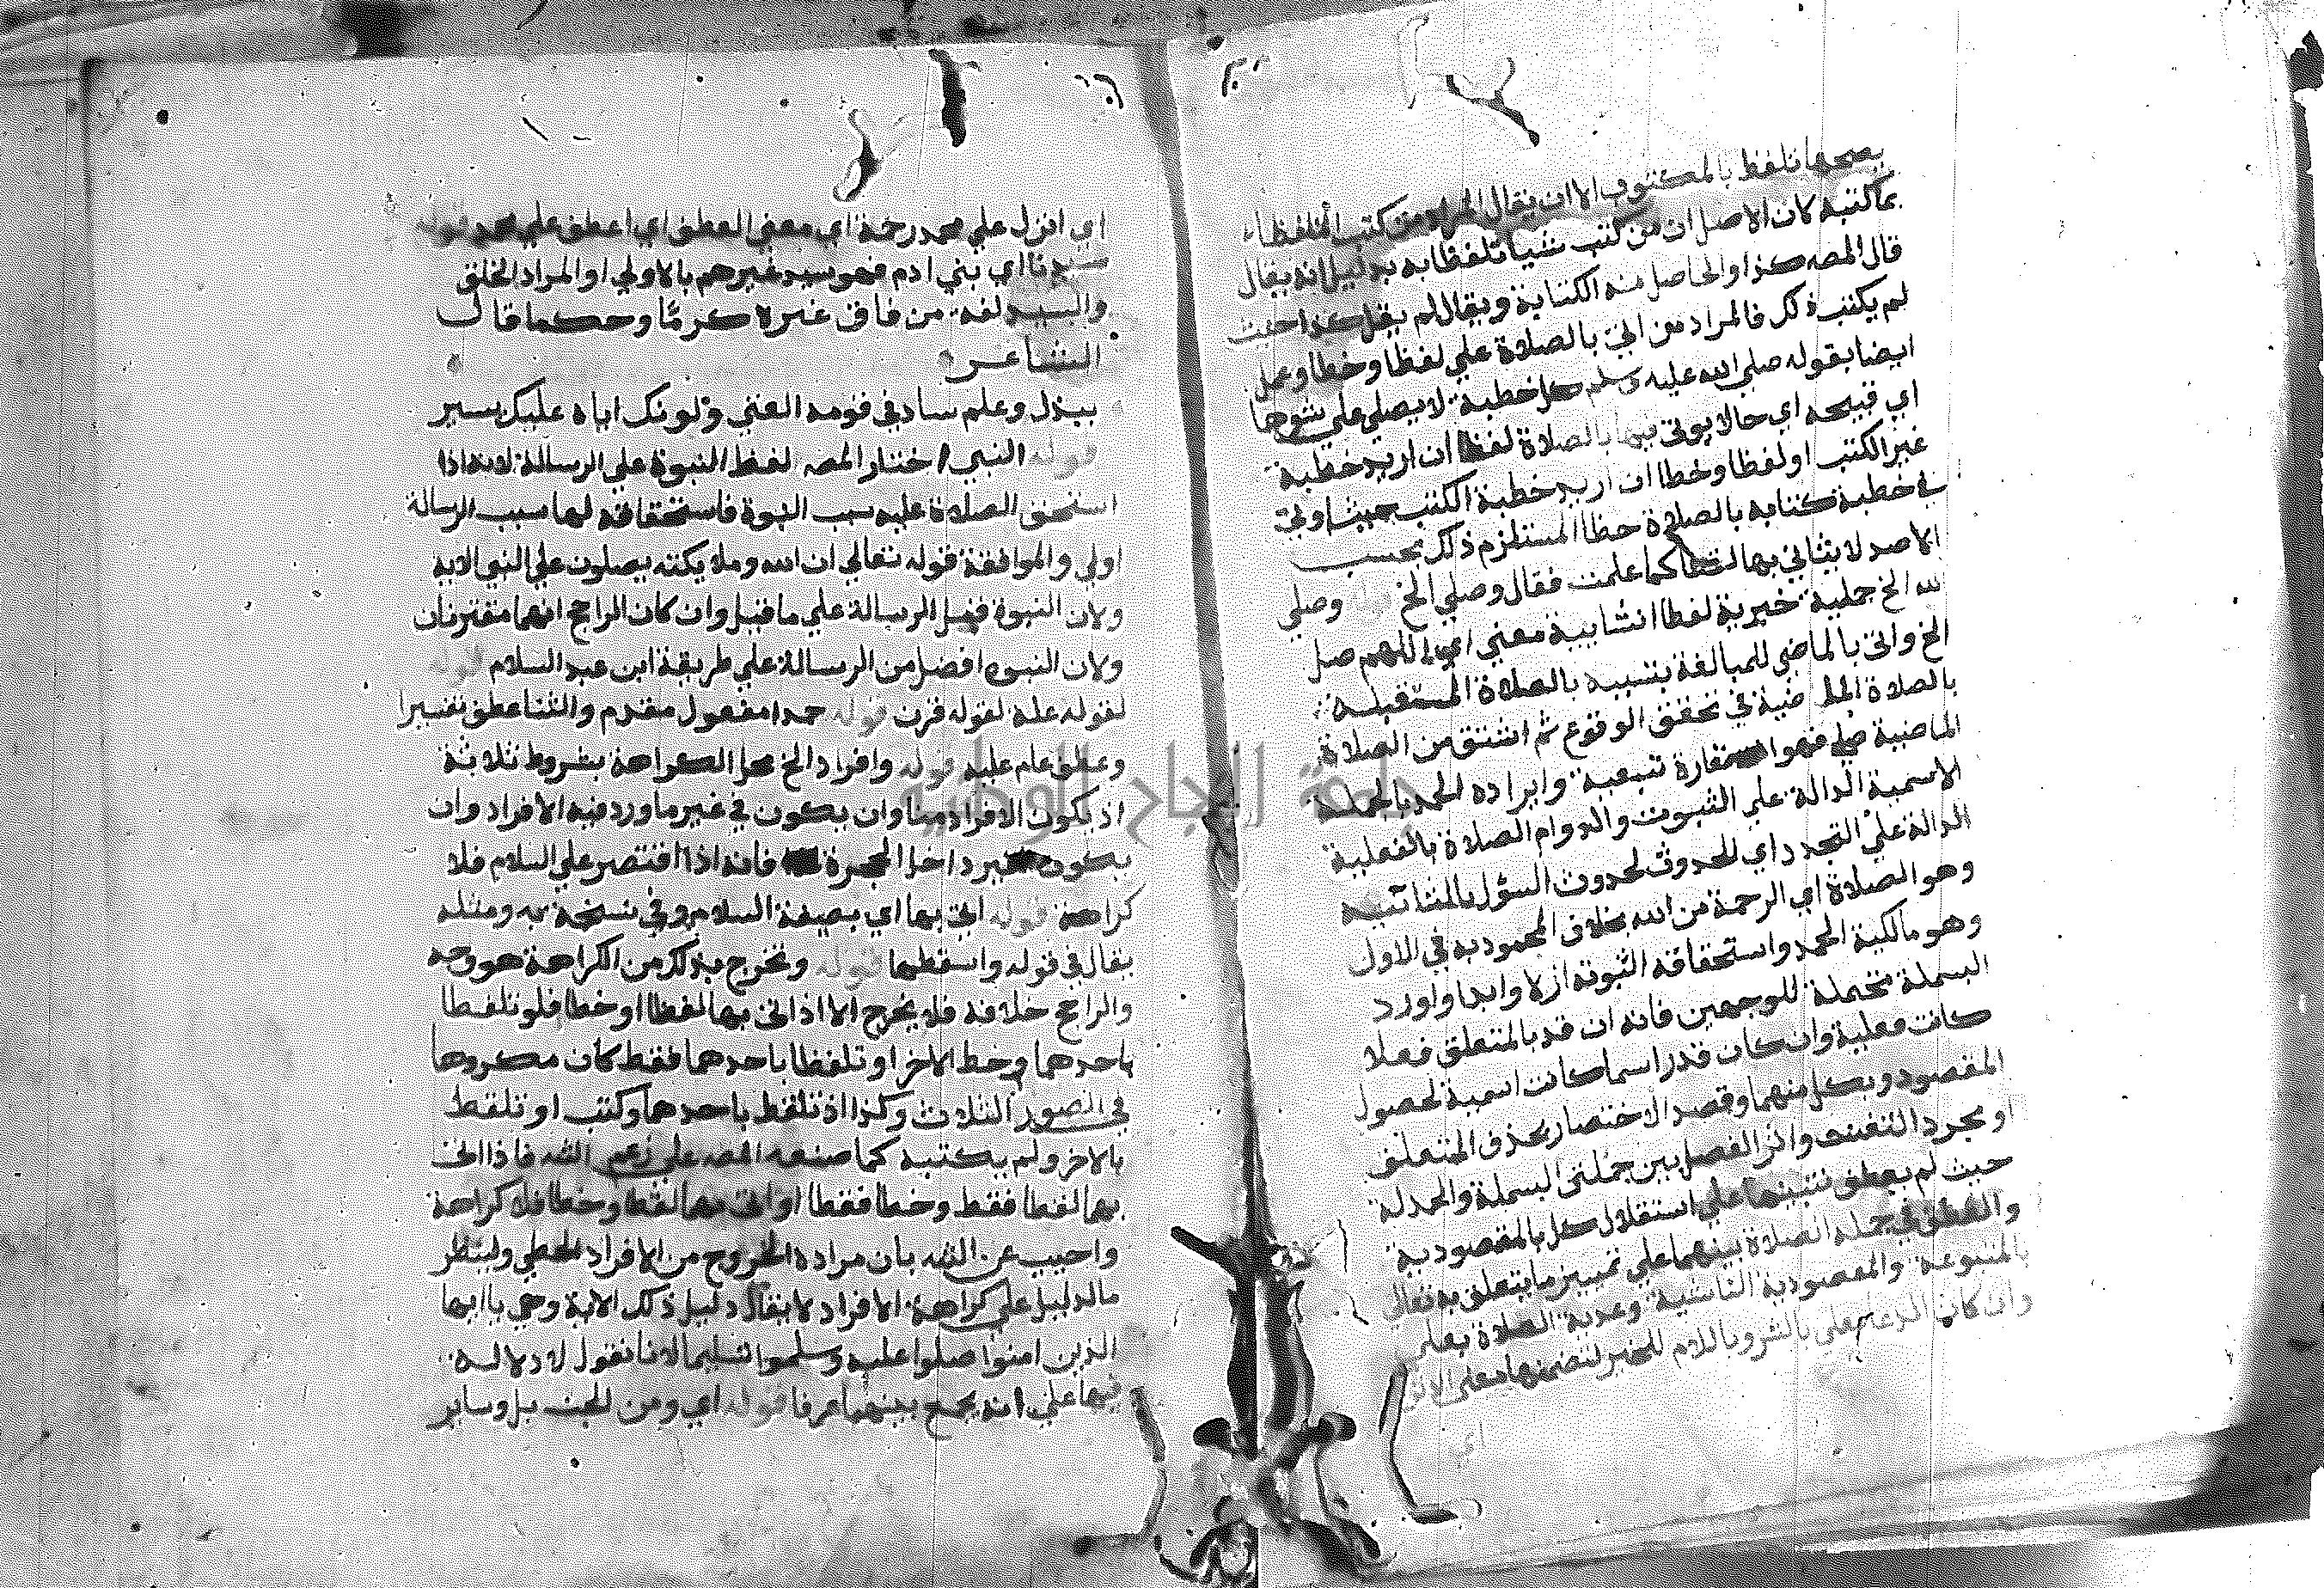 بصحها تلفظ بالمكتوب الا ان يقال المراد من كتب المتلفظ
بما كتبه لان الاصل ان من كتب شيا تلفظ به بدليل انه يقال
قال المصه كذا والحاصل منه الكتابة ويقال لم يقل كذا حيث
لم يكتب ذلك فالمراد من اتي بالصلاة علي لفظا وخطا وعمل
ايضا بقوله صلي الله عليه وسلم كل خطبة لا يصلي علي شوها
اي قبيحه اي حالا يوتي بها بالصلاة لفظا ان اريد خطبة
غير الكتب او لفظا وخطا ان اريد خطبة الكتب حيث اوتي
في خطبة كتابه بالصلاة خطا المستلزم ذلك بحسب
الاصد لا يتاني بها لفظا كما علمت فقال وصلي الخ وصلي
الله الخ جملية خبرية لفظا انشايية معني اي اللهم صل
الخ واتي بالماضي للمبالغة بتشبيه بالصلاة المستقبلة
بالصلاة الماضية في تحقق الوقوع ثم اشتق من الصلاة
الماضية صلي فهو استعارة تبعية وايراده الحمد بالجملة
الاسمية الدالة علي الثبوت والدوام الصلاة بالفعلية
الدالة علي التجدد اي للحدوث لحدوث السؤل بالمثانية
وهو الصلاة اي الرحمة من الله بخلاف المحمود به في الاول
وهو مالكية الحمد واستحقاقه الثبوته ازلا وابدا واورد
البسملة محتملة للوجهين فانه ان قد بالمتعلق فعلا
كانت فعلية وان كان قدر اسما كانت اسمية لحصول
المقصود وبكل منهما وقصد الاختصار بحذف المتعلق
او مجرد التفنن واثر الفصل بين جملتي البسملة والحمدلة
حيث لم يعطف تنبيها علي استقلال كل بالمقصودية
والعطف في جملة الصلاة بينهما علي تمييز ما يتعلق به تعالي
بالمتبوعة والمقصودية الناشية وعدية الصلاة بعلي
وان كان الدعا بعلي بالشر وباللام للخير لتضمنها معني الانزال
اي انزل علي محمد رحمة اي معني العطف اي اعطف علي محمد قوله
سيدنا اي بني ادم فهو سيد غيرهم بالاولي او المراد الخلق
والسيد لغة من فاق غيره كرما وحكما قال
الشاعر
ببذل وعلم ساد في قومه الفتي وكونك اياه عليك يسير
قوله النبي اختار المصه لفظ النبوة علي الرسالة لانه اذا
استحق الصلاة عليه بسبب النبوة فاستحقاقه لها بسبب الرسالة
اولي والموافقة قوله تعالي ان الله وملايكته يصلون علي النبي الاية
ولان النبوة قبل الرسالة علي ما قيل وان كان الراجح انهما مقترنان
ولان النبوه افضل من الرسالة علي طريقة ابن عبد السلام قوله
لقوله علة لقوله قرن قوله حمدا مفعول مقدم والثنا عطف تفسيرا
وعطف عام عليه قوله وافراد الخ محل الكراهة بشروط ثلاثة
اذ يكون الافراد منا وان يكون في غير ما ورد فيه الافراد وان
يكون لغير داخل الحجرة فانه اذا اقتصر علي السلام فلا
كراهة قوله اتي بها اي بصيغة السلام وفي نسخة به ومثله
يقال في قوله واسقطها قوله ونخرج بذلك من الكراهة هو وجه
والراجح خلافه فلا يخرج الا اذ اتي بها لفظا او خطا فلو تلفظا
باحدهما وخط الاخر او تلفظا باحدهما فقط كان مكروها
في الصور الثلاث وكذا اذ تلفظ باحدهما وكتب او تلفظ
بالاخر ولم يكتبه كما صنعه المصه علي زعم الشه فاذا اتي
بها لفظا فقط وخطا فقطا او اتي بها لفظا وخطا فلا كراهة
واجيب عن الشه بان مراده الخروج من الافراد الخطي ولينظر
ما الدليل علي كراهة الافراد لا يقال دليل ذلك الاية وهي يا ايها
الذين امنوا صلوا عليه وسلموا تسليما لانا نقول لا دلاله
فيها علي انه يجمع بينهما عرفا قوله اي ومن للجنب بل وساير
جامعة النجاح الوطنية